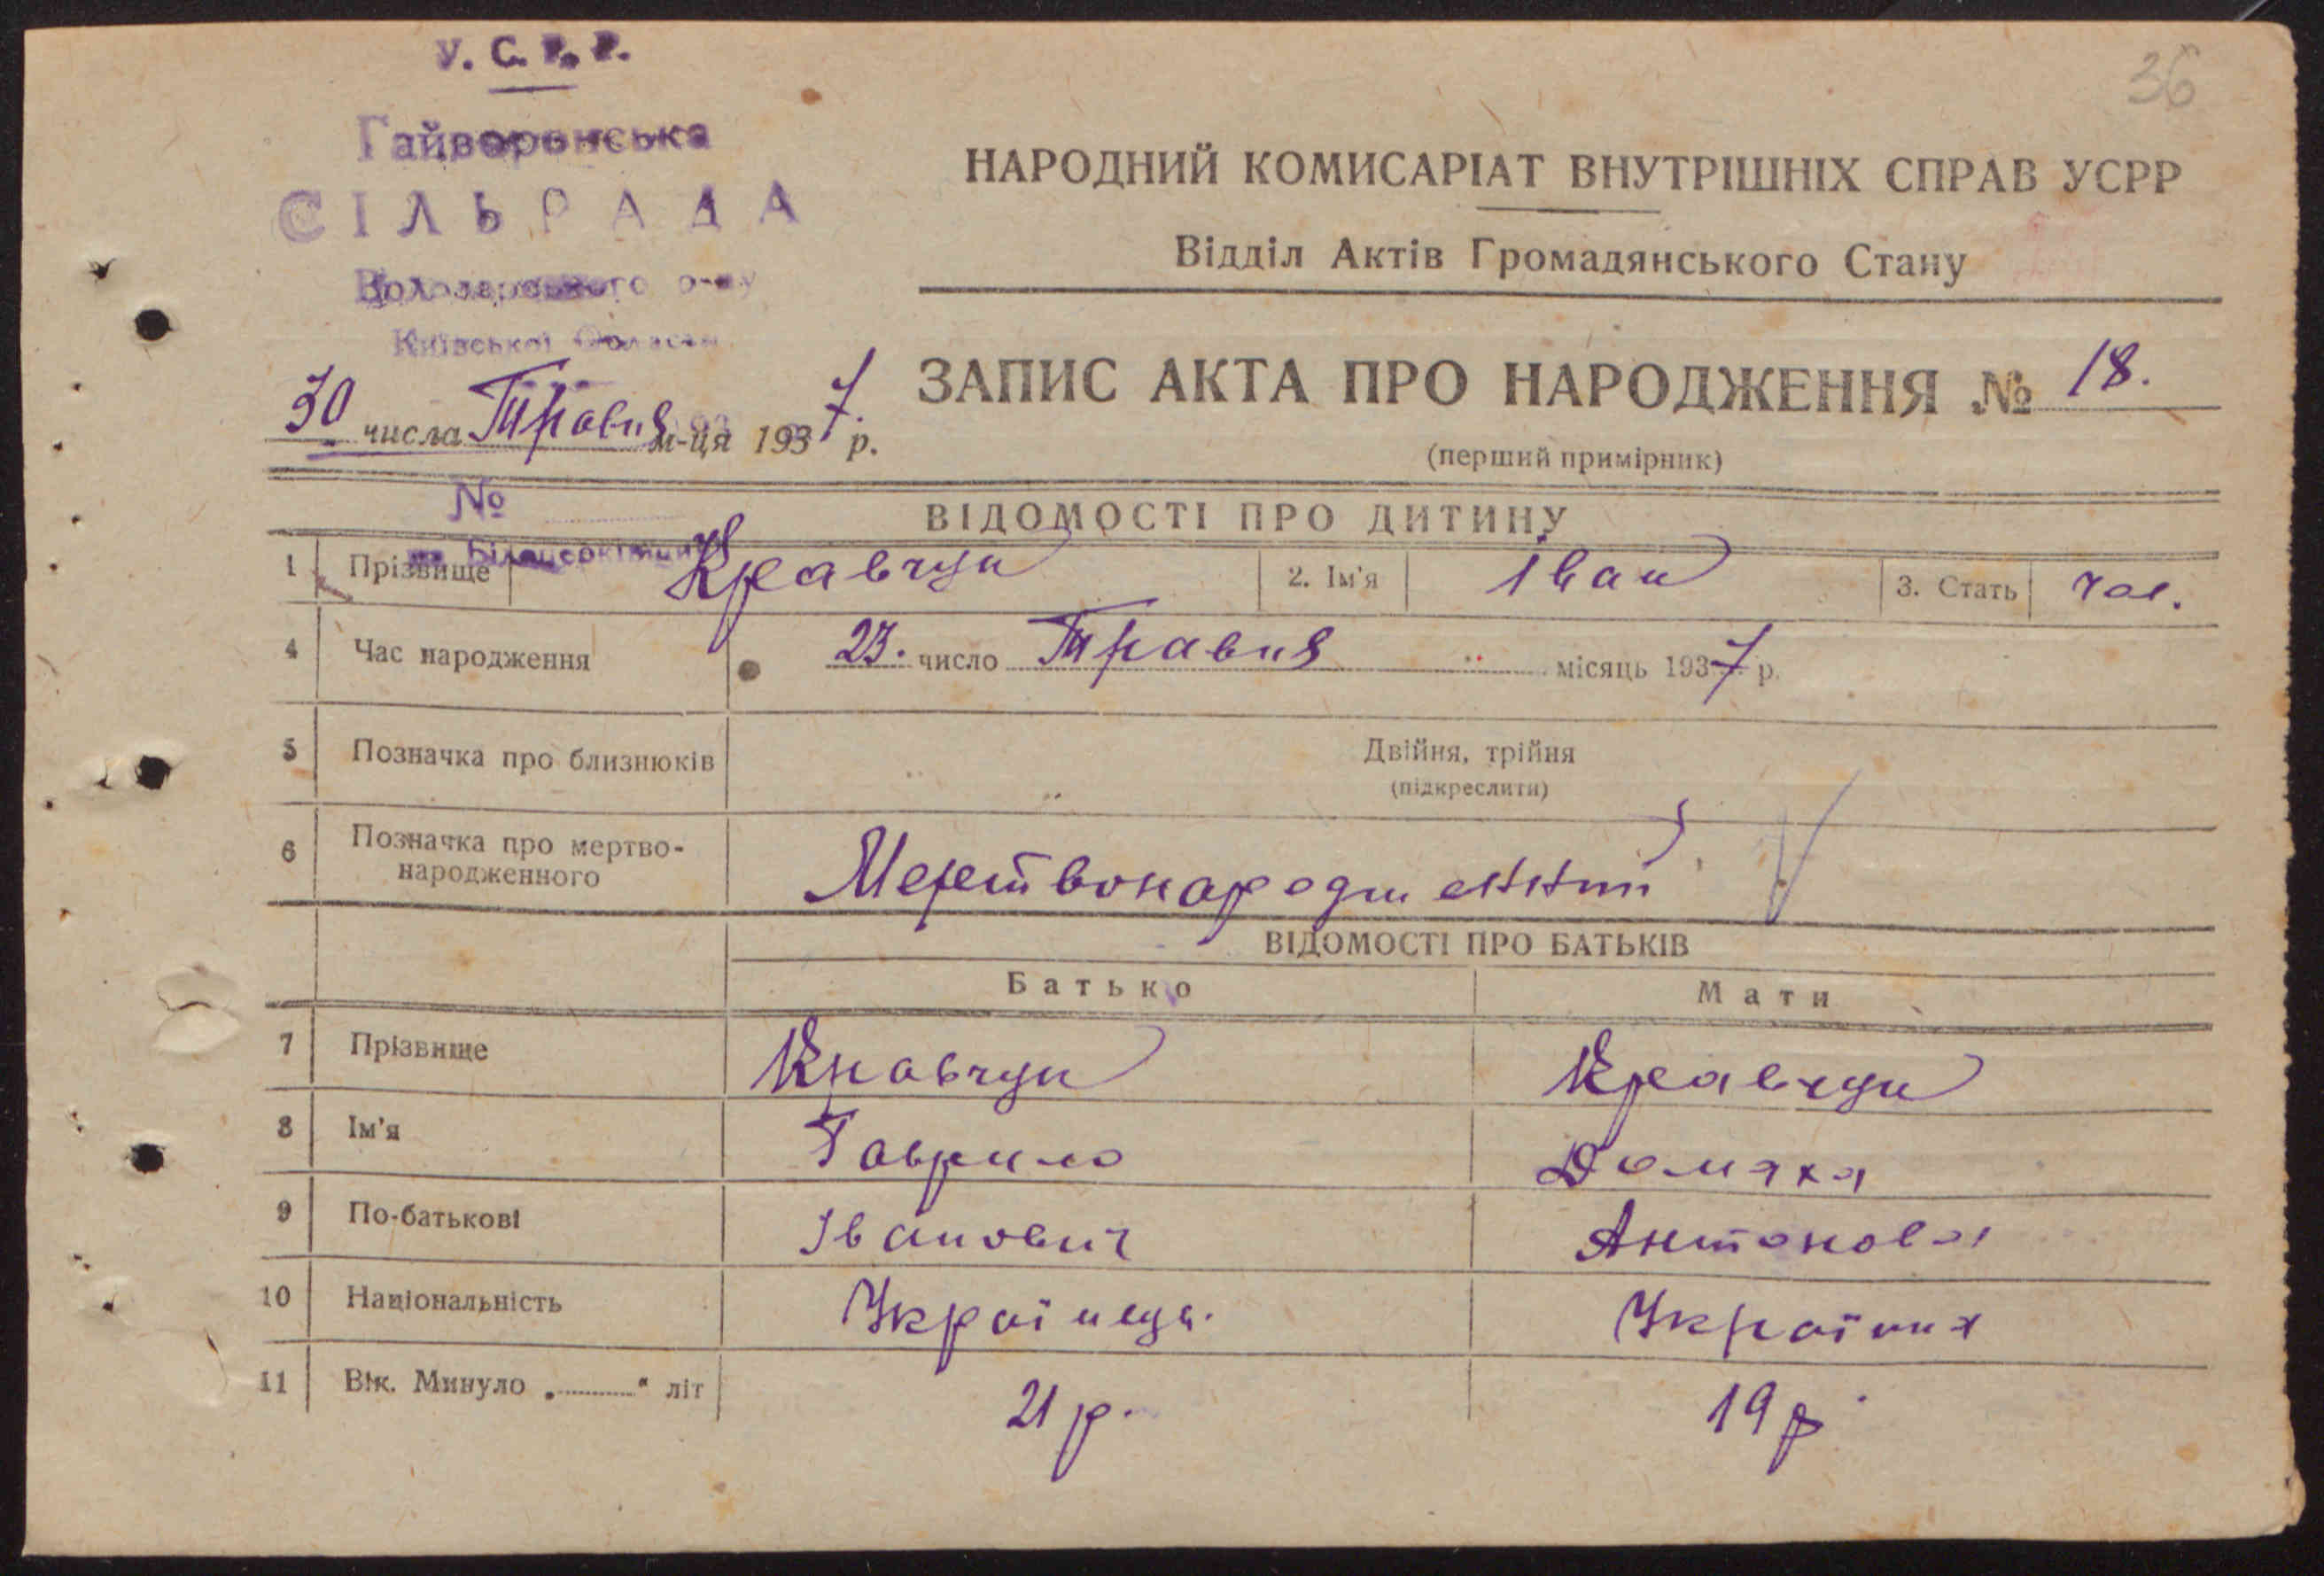 36
У. С. Р. Р.
Гайворонська
СІЛЬРАДА
Володарського р-ну
Київської Області
НАРОДНИЙ КОМИСАРІАТ ВНУТРІШНІХ СПРАВ УСРР
Відділ Актів Громадянського Стану
30 числа Травня м-ця 1937 р.
ЗАПИС АКТА ПРО НАРОДЖЕННЯ № 18.
(перший примірник)
№
ВІДОМОСТІ ПРО ДИТИНУ
1 Прізвище Кравчук 2. Ім'я Іван 3. Стать чол.
4 Час народження 23. число Травня місяць 1937 р.
5 Позначка про близнюків Двійня, трійня
(підкреслити)
6 Позначка про мертво-
народженного Мертвонародженний
ВІДОМОСТІ ПРО БАТЬКІВ
Батько Мати
7 Прізвище Кравчук Кравчук
8 Ім'я Гаврило Домаха
9 По-батькові Іванович Антонова
10 Національність Українець. Українка
11 Вік. Минуло „ “ літ 21 р. 19 р.